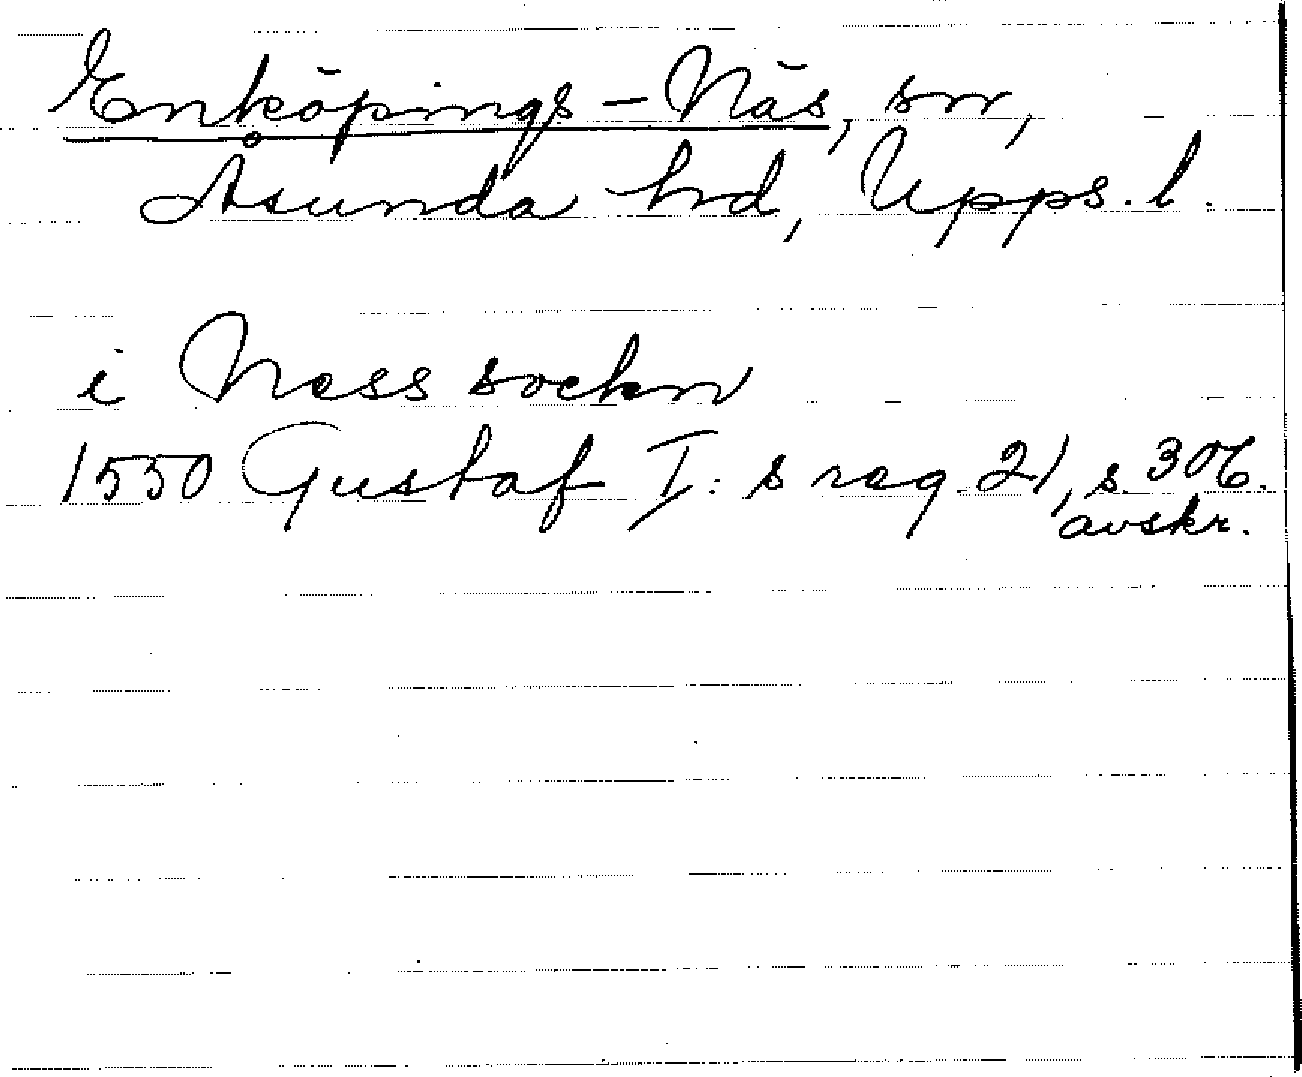 Enköpings-Näs, sn,
Åsunda hd, Upps. l.
i Ness sockn
1550 Gustaf I:s reg. 21, s. 306.
avskr.